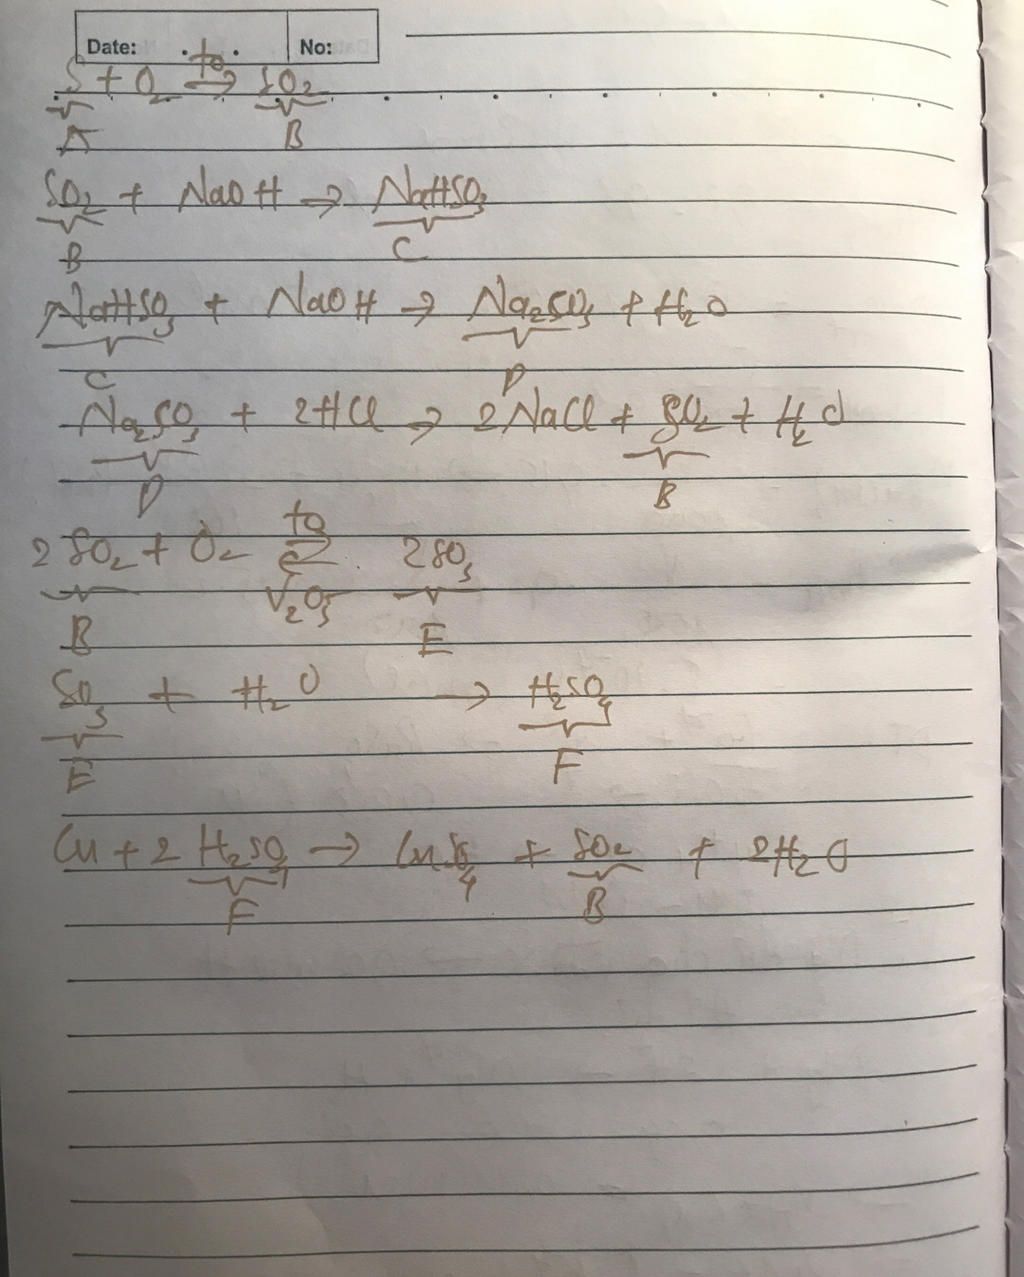 Date: No:
S + O2 to → SO2
A B
SO2 + NaOH → NaHSO3
B C
NaHSO3 + NaOH → Na2SO3 + H2O
C D
Na2SO3 + 2HCl → 2NaCl + SO2 + H2O
D B
to
2SO2 + O2 ⇌ 2SO3
V2O5
B E
SO3 + H2O → H2SO4
E F
Cu + 2H2SO4 → CuSO4 + SO2 + 2H2O
F B